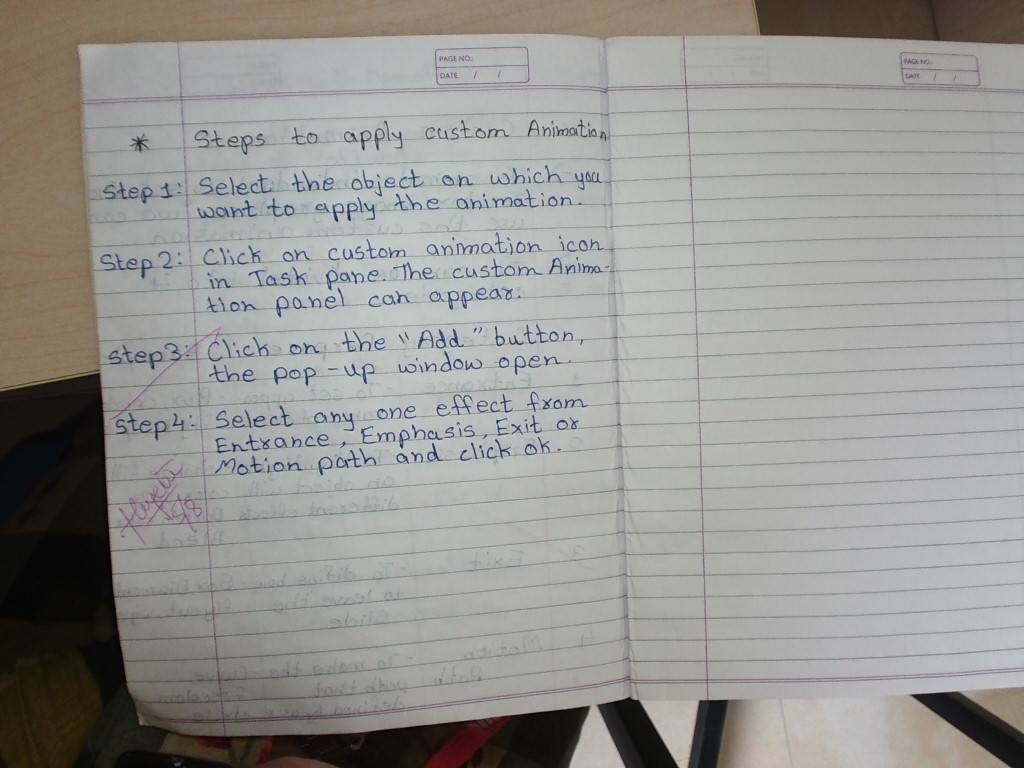 PAGE NO.:
DATE / /
* Steps to apply custom Animation
Step 1: Select the object on which you
want to apply the animation.
Step 2: Click on custom animation icon
in Task pane. The custom Anima-
tion panel can appear.
Step 3: Click on the "Add" button,
the pop-up window open.
Step 4: Select any one effect from
Entrance, Emphasis, Exit or
Motion path and click ok.
PAGE NO.:
DATE / /